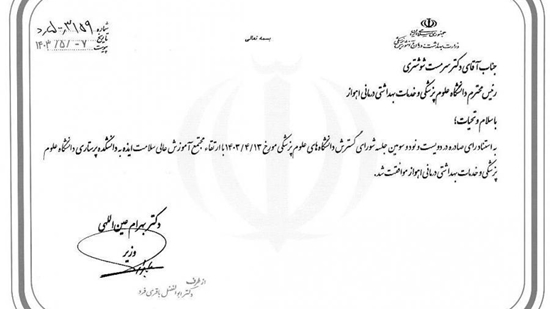 بسمه تعالی
جمهوری اسلامی ایران
وزارت بهداشت، درمان و آموزش پزشکی
شماره ۳۱۵۹/د۵۰۰
تاریخ ۱۴۰۳/۵/۰۷
پیوست
جناب آقای دکتر سرمست شوشتری
رئیس محترم دانشگاه علوم پزشکی و خدمات بهداشتی درمانی اهواز
با سلام و تحیات؛
به استناد رای صادره در دویست و نود و سومین جلسه شورای گسترش دانشگاه‌های علوم پزشکی مورخ ۱۴۰۳/۴/۱۳ با ارتقاء مجتمع آموزش عالی سلامت ایذه به دانشکده پرستاری دانشگاه علوم
پزشکی و خدمات بهداشتی درمانی اهواز موافقت شد.
دکتر بهرام عین‌اللهی
وزیر
از طرف
دکتر ابوالفضل باقری فرد